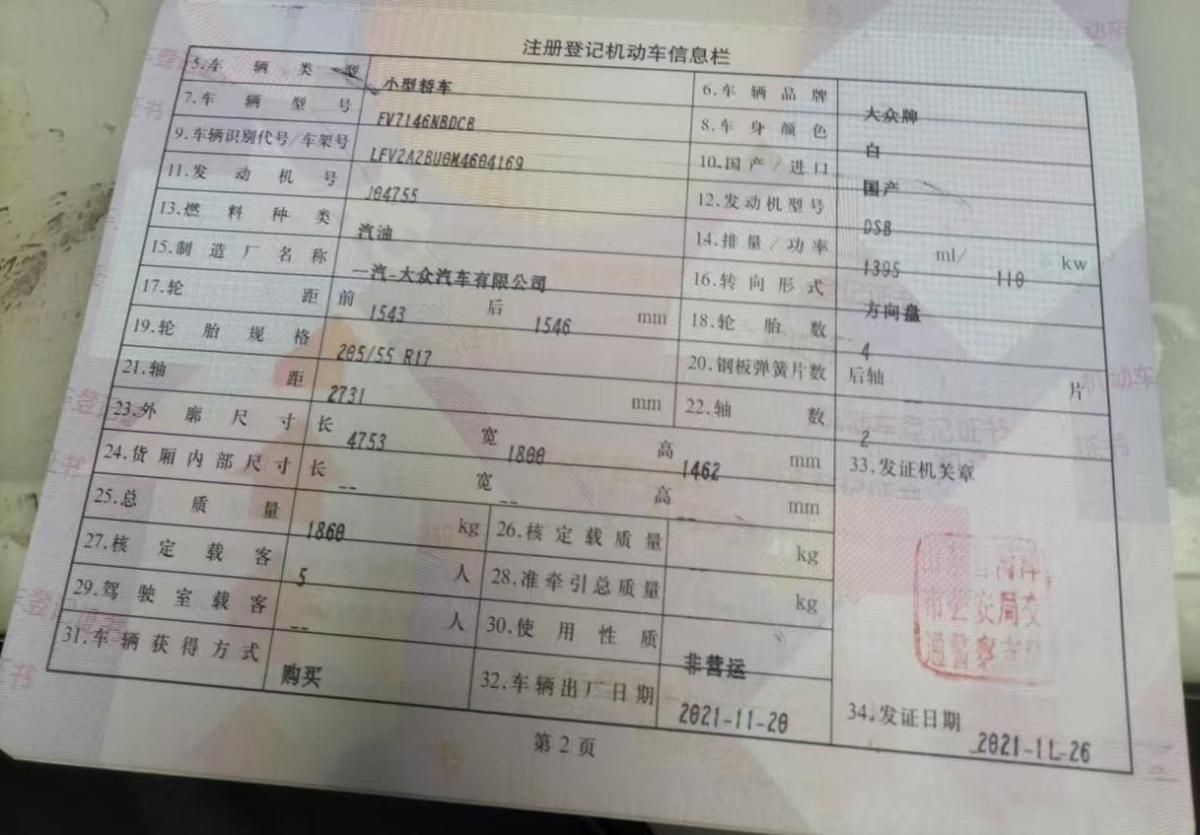 注册登记机动车信息栏
5.车辆类型 小型轿车 6.车辆品牌 大众牌
7.车辆型号 FV7146NBDCB 8.车身颜色 白
9.车辆识别代号/车架号 LFV2A2BU0M4604169 10.国产/进口 国产
11.发动机号 J04755 12.发动机型号 DSB
13.燃料种类 汽油 14.排量/功率 1395 ml/ 110 kw
15.制造厂名称 一汽-大众汽车有限公司 16.转向形式 方向盘
17.轮距 前 1543 后 1546 mm 18.轮胎数 4
19.轮胎规格 205/55 R17 20.钢板弹簧片数 后轴 片
21.轴距 2731 mm 22.轴数 2
23.外廓尺寸 长 4753 宽 1800 高 1462 mm 33.发证机关章
24.货厢内部尺寸 长 -- 宽 -- 高 -- mm
25.总质量 1860 kg 26.核定载质量 kg
27.核定载客 5 人 28.准牵引总质量 -- kg
29.驾驶室载客 -- 人 30.使用性质 非营运
31.车辆获得方式 购买 32.车辆出厂日期 2021-11-20 34.发证日期 2021-11-26
市公安局交
通警察
第2页